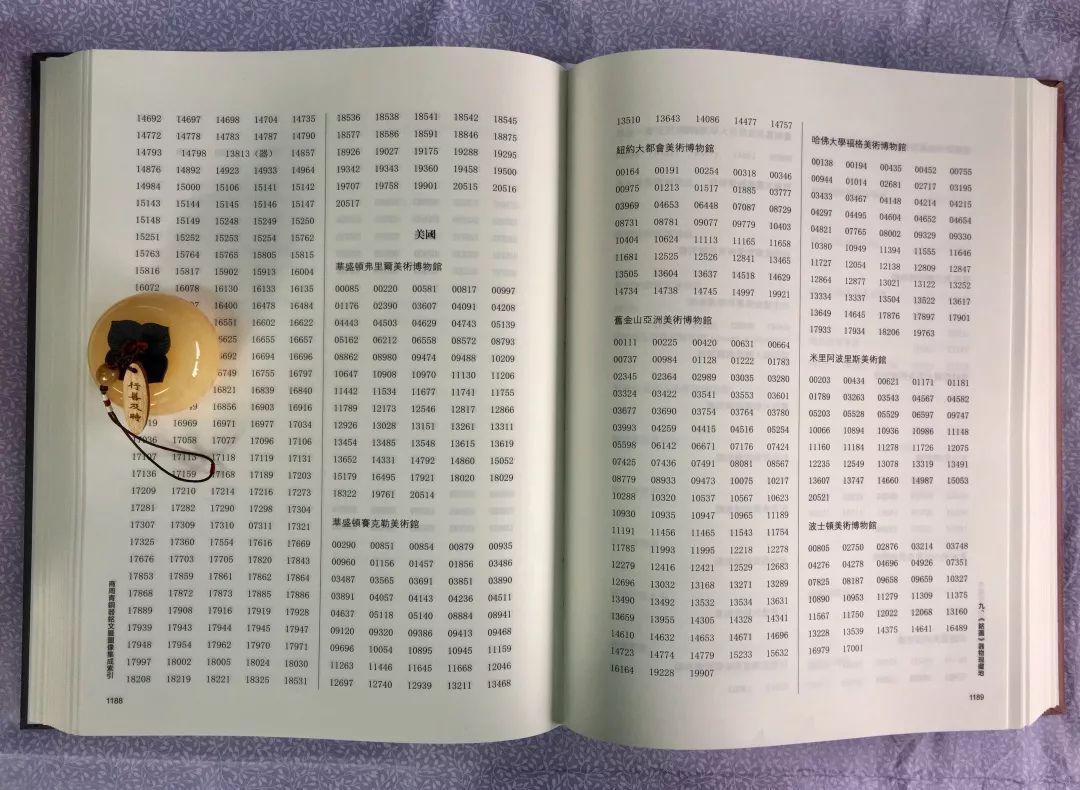 14692 14697 14698 14704 14735
14772 14778 14783 14787 14790
14793 14798 13813（器） 14857
14876 14892 14923 14933 14964
14984 15000 15106 15141 15142
15143 15144 15145 15146 15147
15148 15149 15248 15249 15250
15251 15252 15253 15254 15762
15763 15764 15765 15805 15815
15816 15817 15902 15913 16004
16072 16078 16130 16133 16135
16400 16478 16484
16551 16602 16622
16655 16657
16694 16696
16755 16797
16821 16839 16840
16856 16903 16916
16969 16971 16977 17034
17058 17077 17096 17106
17118 17119 17131
17136 17159 17168 17189 17203
17209 17210 17214 17216 17273
17281 17282 17290 17298 17304
17307 17309 17310 07311 17321
17325 17360 17554 17616 17669
17676 17703 17705 17820 17843
17853 17859 17861 17862 17864
17868 17872 17873 17885 17886
17889 17908 17916 17919 17928
17939 17943 17944 17945 17947
17948 17954 17962 17970 17971
17997 18002 18005 18024 18030
18208 18219 18221 18325 18531
18536 18538 18541 18542 18545
18577 18586 18591 18846 18875
18926 19027 19175 19288 19295
19342 19343 19360 19458 19500
19707 19758 19901 20515 20516
20517
美國
華盛頓弗里爾美術博物館
00085 00220 00581 00817 00997
01176 02390 03607 04091 04208
04443 04503 04629 04743 05139
05162 06212 06558 08572 08793
08862 08980 09474 09488 10209
10647 10908 10970 11130 11206
11442 11534 11677 11741 11755
11789 12173 12546 12817 12866
12926 13028 13151 13261 13311
13454 13485 13548 13615 13619
13652 14331 14792 14860 15052
15179 16495 17921 18020 18029
18322 19761 20514
華盛頓賽克勒美術館
00290 00851 00854 00879 00935
00960 01156 01457 01856 03486
03487 03565 03691 03851 03890
03891 04057 04143 04236 04511
04637 05118 05140 08884 08941
09120 09320 09386 09413 09468
09696 10054 10895 10945 11159
11263 11446 11645 11668 12046
12697 12740 12939 13211 13468
商周青銅器銘文暨圖像集成索引
1188
13510 13643 14086 14477 14757
紐約大都會美術博物館
00164 00191 00254 00318 00346
00975 01213 01517 01885 03777
03969 04653 06448 07087 08729
08731 08781 09077 09779 10403
10404 10624 11113 11165 11658
11681 12525 12526 12841 13465
13505 13604 13637 14518 14629
14734 14738 14745 14997 19921
舊金山亞洲美術博物館
00111 00225 00420 00631 00664
00737 00984 01128 01222 01783
02345 02364 02989 03035 03280
03324 03422 03541 03553 03601
03677 03690 03754 03764 03780
03993 04259 04415 04516 05254
05598 06142 06671 07176 07424
07425 07436 07491 08081 08567
08779 08933 09473 10075 10217
10288 10320 10537 10567 10623
10930 10935 10947 10965 11189
11191 11456 11465 11543 11754
11785 11993 11995 12218 12278
12279 12416 12421 12529 12683
12696 13032 13168 13271 13289
13490 13492 13532 13534 13631
13659 13955 14305 14328 14341
14610 14632 14653 14671 14696
14723 14774 14779 15233 15632
16164 19228 19907
哈佛大學福格美術博物館
00138 00194 00435 00452 00755
00944 01014 02681 02717 03195
03433 03467 04148 04214 04215
04297 04495 04604 04652 04654
04821 07765 08002 09329 09330
10380 10949 11394 11555 11646
11727 12054 12138 12809 12847
12864 12877 13021 13122 13252
13334 13337 13504 13522 13617
13649 14645 17876 17897 17901
17933 17934 18206 19763
米里阿波里斯美術館
00203 00434 00621 01171 01181
01789 03263 03543 04567 04582
05203 05528 05529 06597 09747
10066 10894 10936 10986 11148
11160 11184 11278 11726 12075
12235 12549 13078 13319 13491
13607 13747 14660 14987 15053
20521
波士頓美術博物館
00805 02750 02876 03214 03748
04276 04278 04696 04926 07351
07825 08187 09658 09659 10327
10890 10953 11279 11309 11375
11567 11750 12022 12068 13160
13228 13539 14375 14641 16489
16979 17001
九、《銘圖》器物現藏地
1189
行善及時